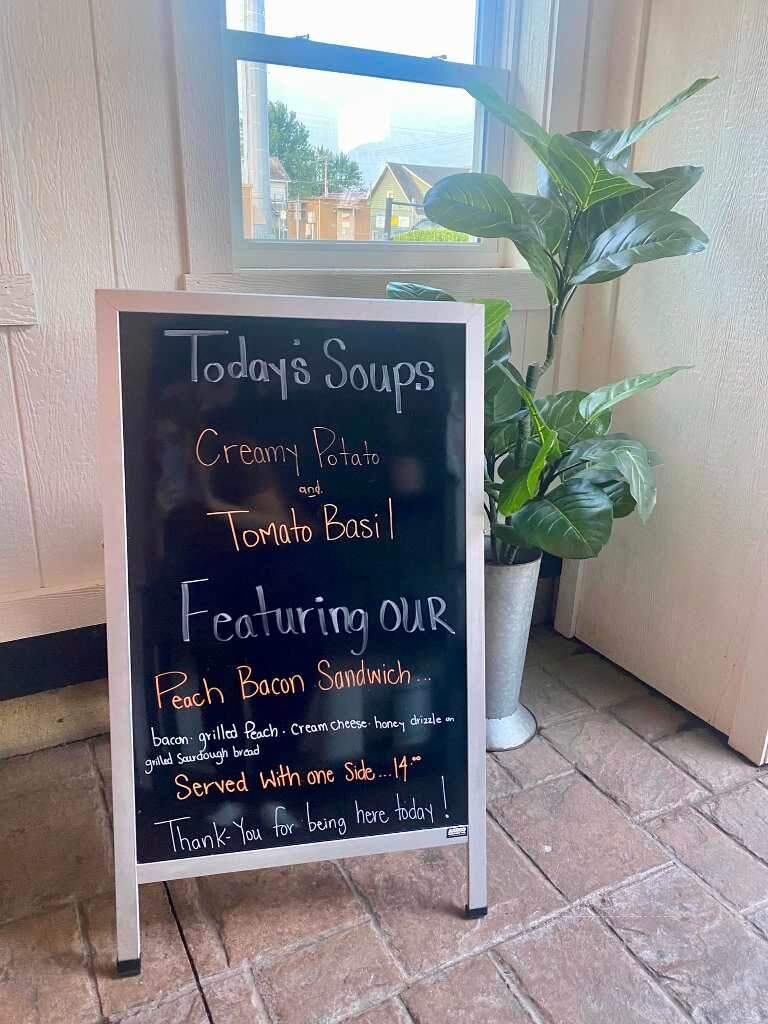 Today's Soups
Creamy Potato
and
Tomato Basil
Featuring OUR
Peach Bacon Sandwich...
bacon · grilled Peach · cream cheese · honey drizzle on
grilled Sourdough bread
Served with one Side...14.00
Thank-You for being here today!